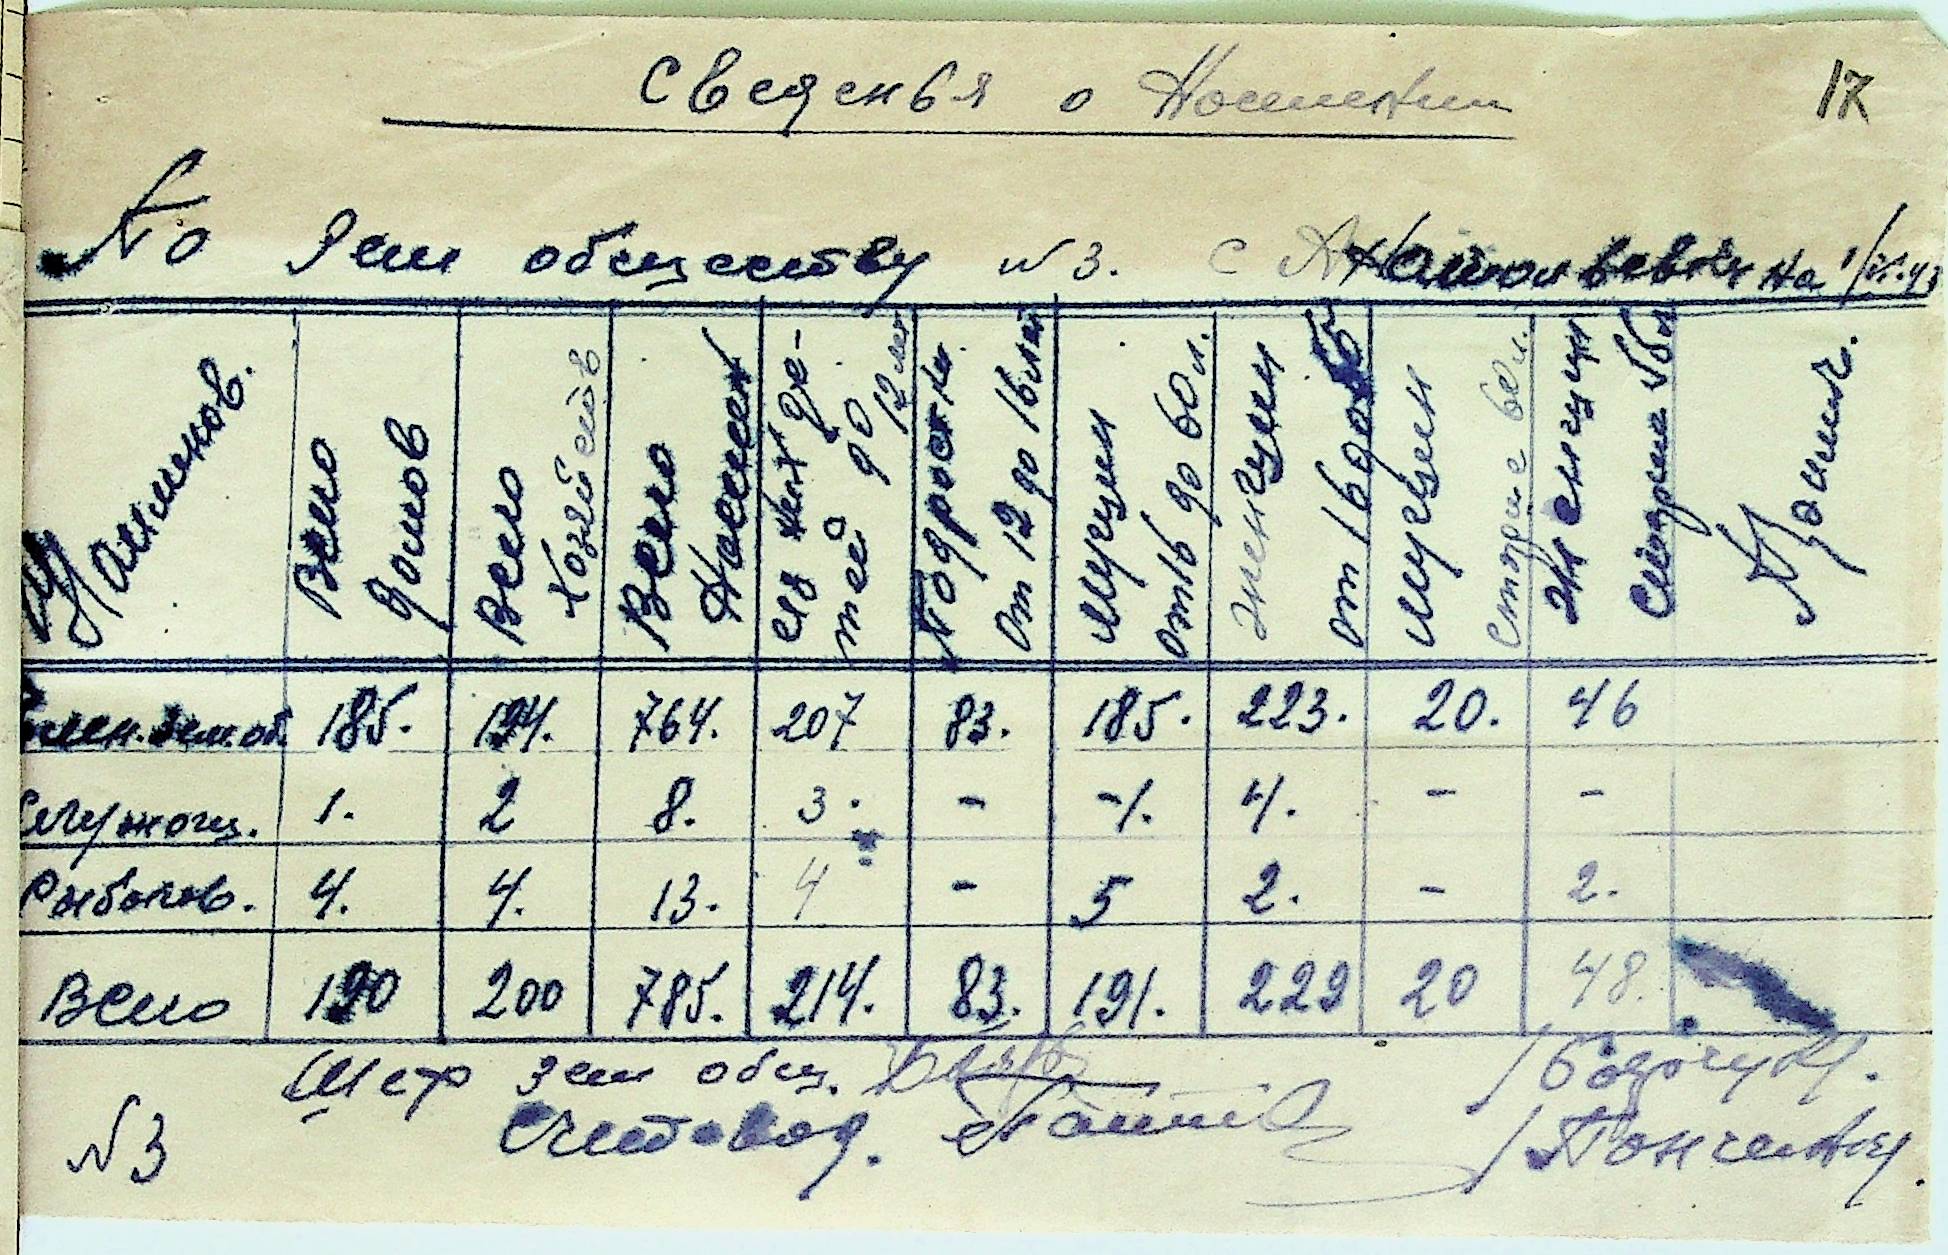 Сведенья о Населении
17
По Зем обществу №3. с Анатольевки на 1/
Наименов. Всего домов Всего Хозяйств Всего Населен Из них детей до 12 лет Подростки от 12 до 16 лет Мущин от 16 до 60 л. Женщин от 16 до 55 Мущин старше 60 л. Женщин старше 55 л Примеч.
Член. Зем. об. 185. 194. 764. 207 83. 185. 223. 20. 46
Служащ. 1. 2 8. 3. - -1. 4. - -
Рыболов. 4. 4. 13. 4 - 5 2. - 2.
Всего 190 200 785. 214. 83. 191. 229 20 48.
Зем общ.
Счетовод.
№3